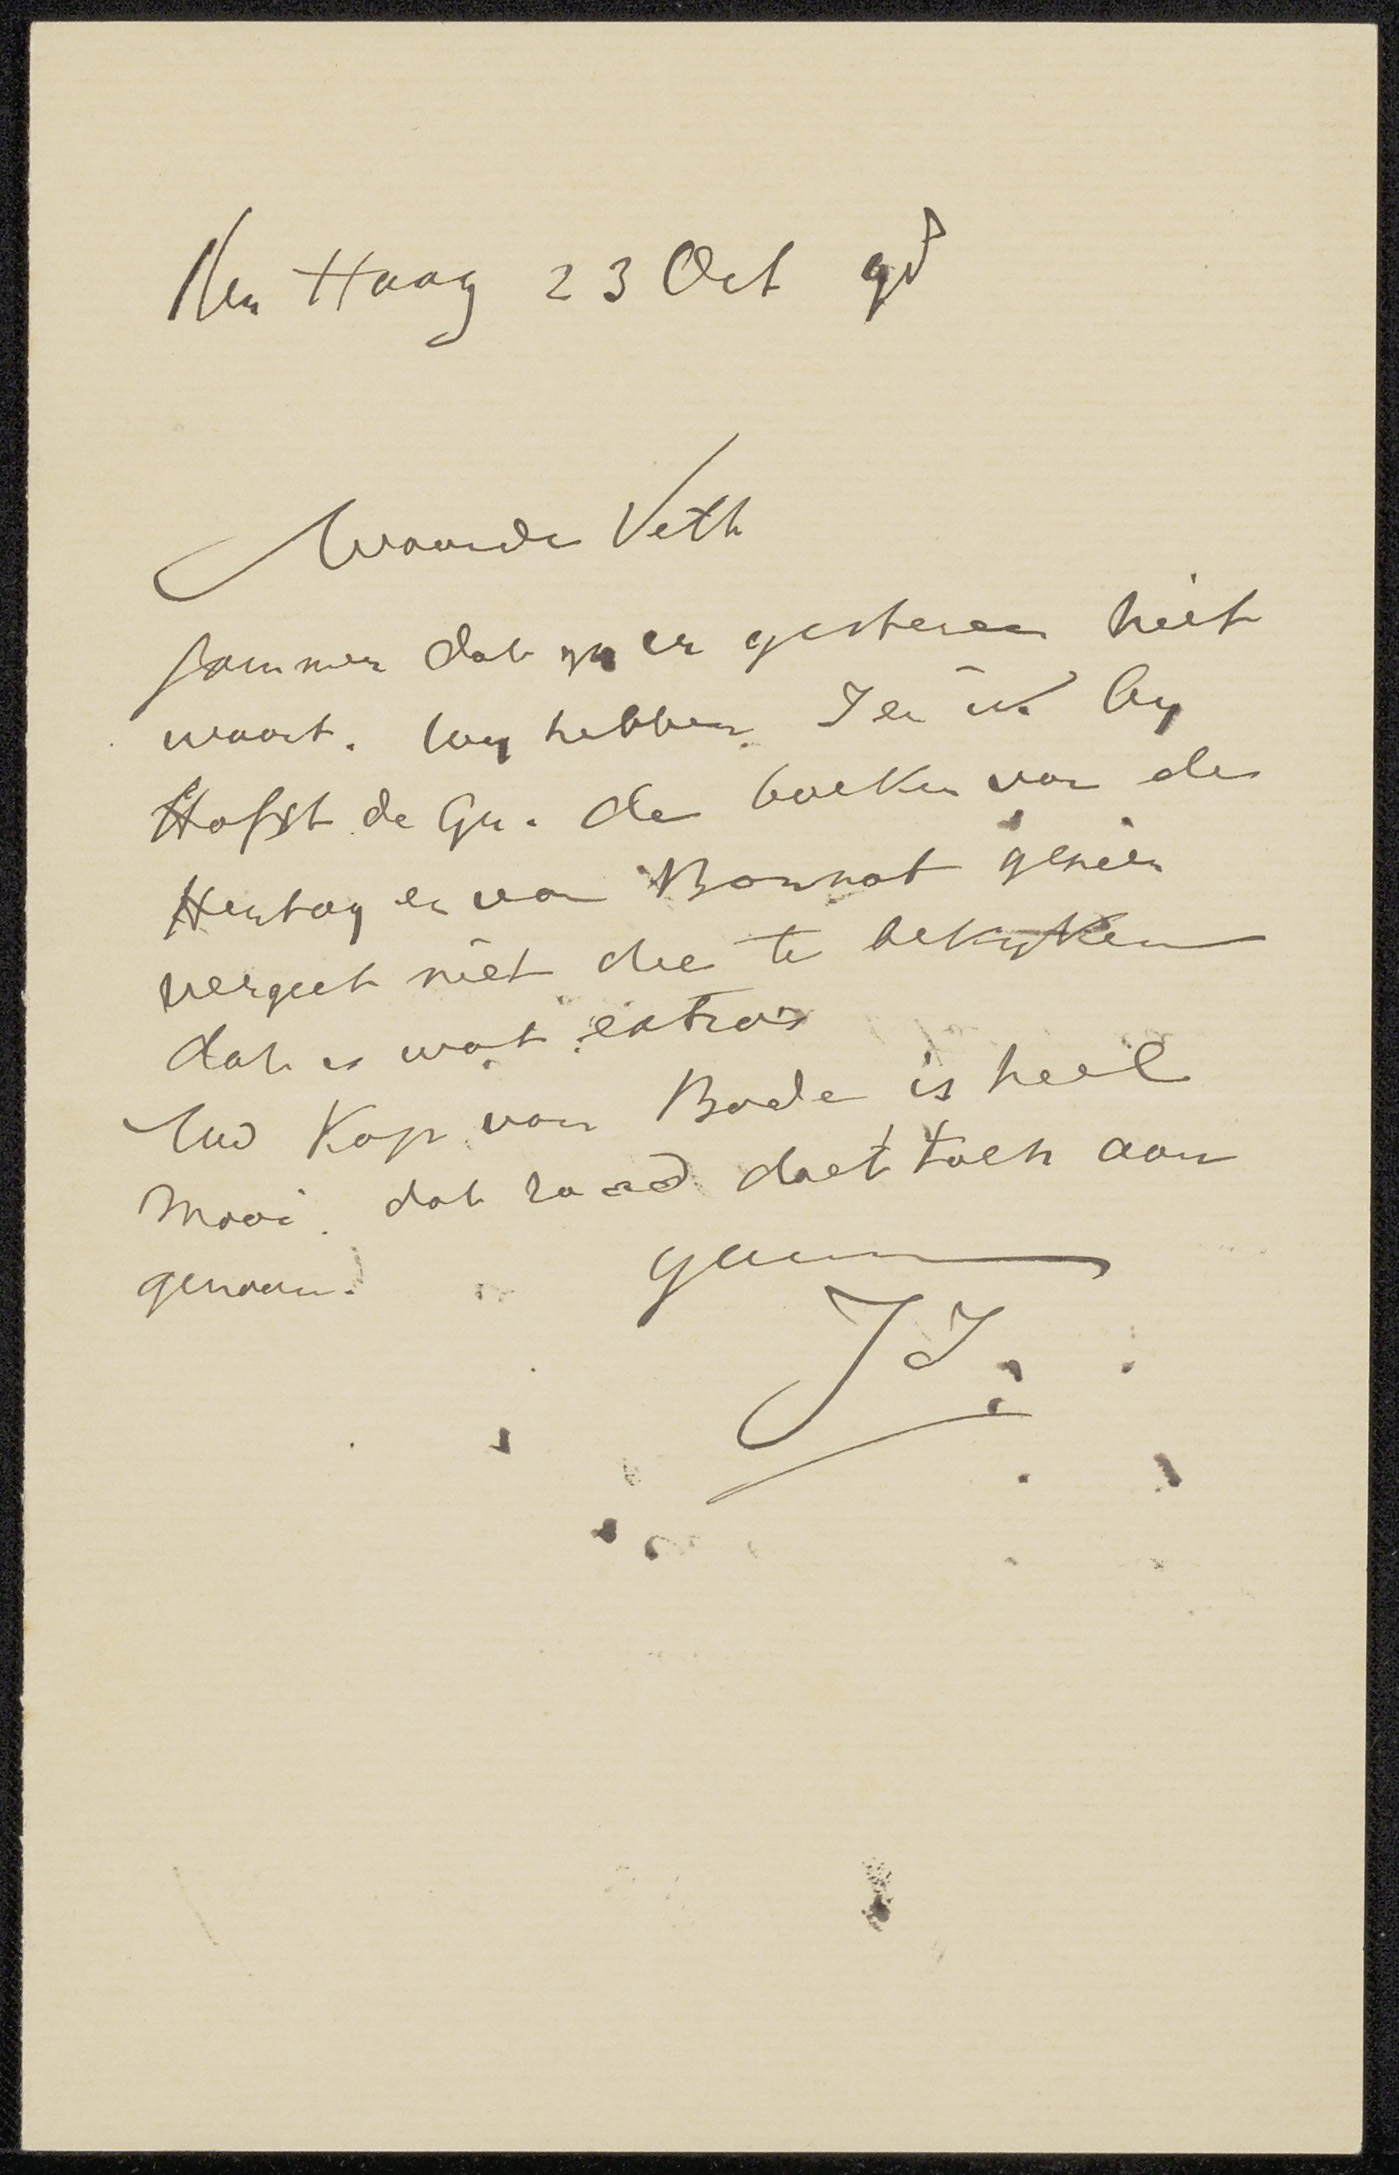 Den Haag 23 Oct 98
Waarde Veth
Jammer dat gy er gisteren niet
waart. Wy hebben I en ik by
Hofst de Gr. de boeken van de
Hertog en van Bonnat gezien
vergeet niet die te bekyken
dat is wat extra's
Uw Kop van Bode is heel
mooi. dat raad doet toch aan
genaam.
JI.